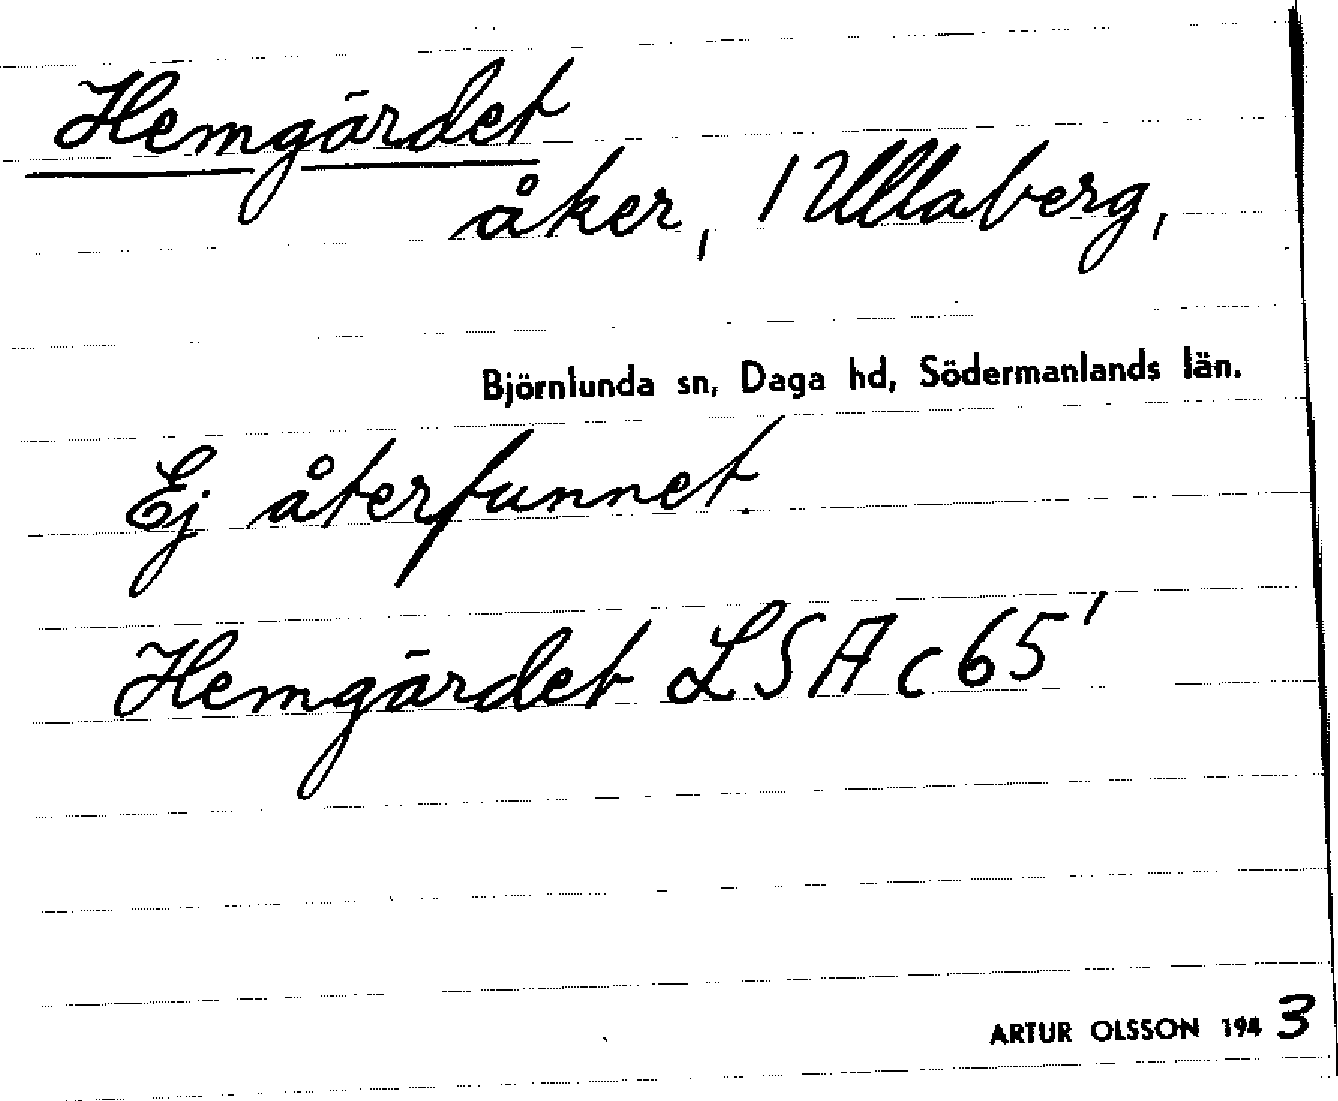 Hemgärdet
åker, 1 Ullaberg,
Björnlunda sn, Daga hd, Södermanlands län.
Ej återfunnet.
Hemgärdet LSA c 65'
ARTUR OLSSON 1943